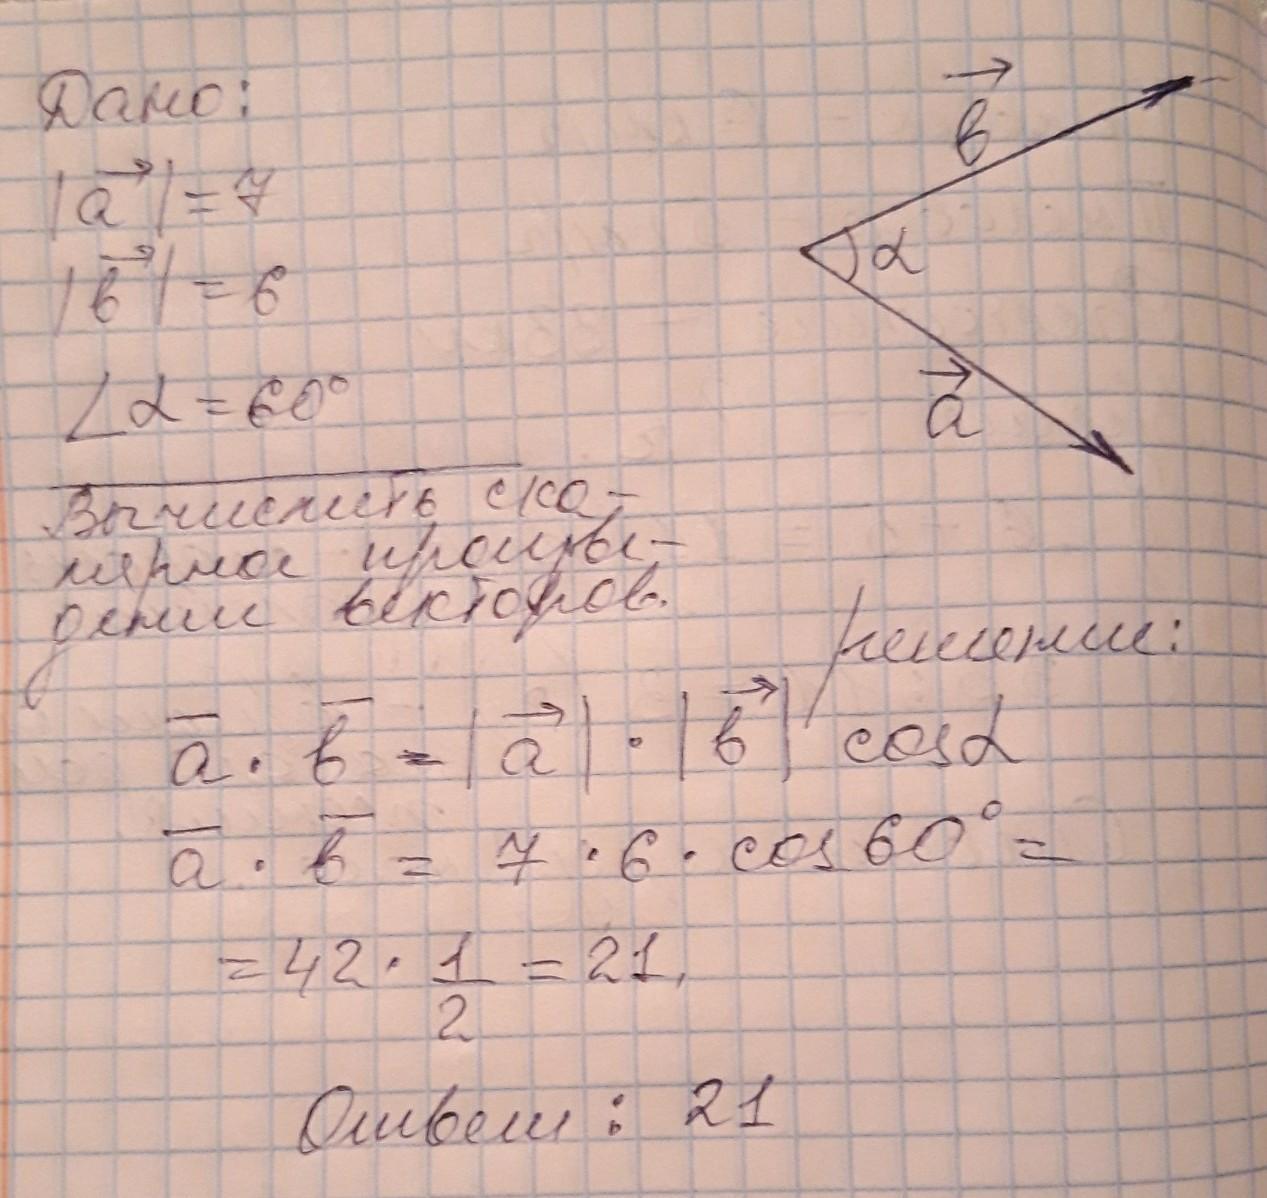 Дано:
|a⃗| = 7
|b⃗| = 6
∠α = 60°
Вычислить ска-
лярное произве-
дение векторов.
b⃗
α
a⃗
Решение:
a̅ · b̅ = |a⃗| · |b⃗| cosα
a̅ · b̅ = 7 · 6 · cos 60° =
= 42 · 1/2 = 21.
Ответ: 21